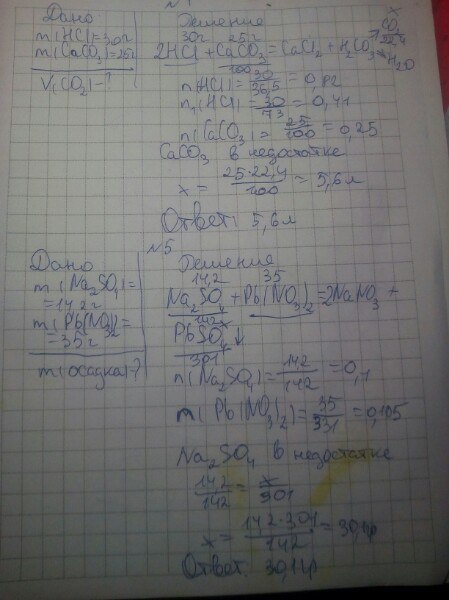 Дано:
m(HCl)=30г
m(CaCO3)=25г
V(CO2)-?
Решение
30г 25г x
2HCl + CaCO3 = CaCl2 + H2CO3 CO2 22,4 H2O
100
n(HCl)= 30/36,5 = 0,82
n1(HCl)= 30/73 = 0,41
n(CaCO3)= 25/100 = 0,25
CaCO3 в недостатке
x = 25·22,4/100 = 5,6л
Ответ: 5,6л
№5
Дано
m(Na2SO4)=
=14,2г
m(Pb(NO3)2=
=35г
m(осадка)-?
Решение
14,2 35
Na2SO4 + Pb(NO3)2 = 2NaNO3 +
142 x
PbSO4↓
301
n(Na2SO4)= 14,2/142 = 0,1
m(Pb(NO3)2)= 35/331 = 0,105
Na2SO4 в недостатке
14,2/142 = x/301
x = 14,2·301/142 = 30,1гр
Ответ: 30,1гр